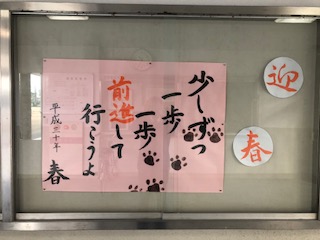 少しずつ
一歩
一歩
前進して
行こうよ
平成三十年
春
迎
春